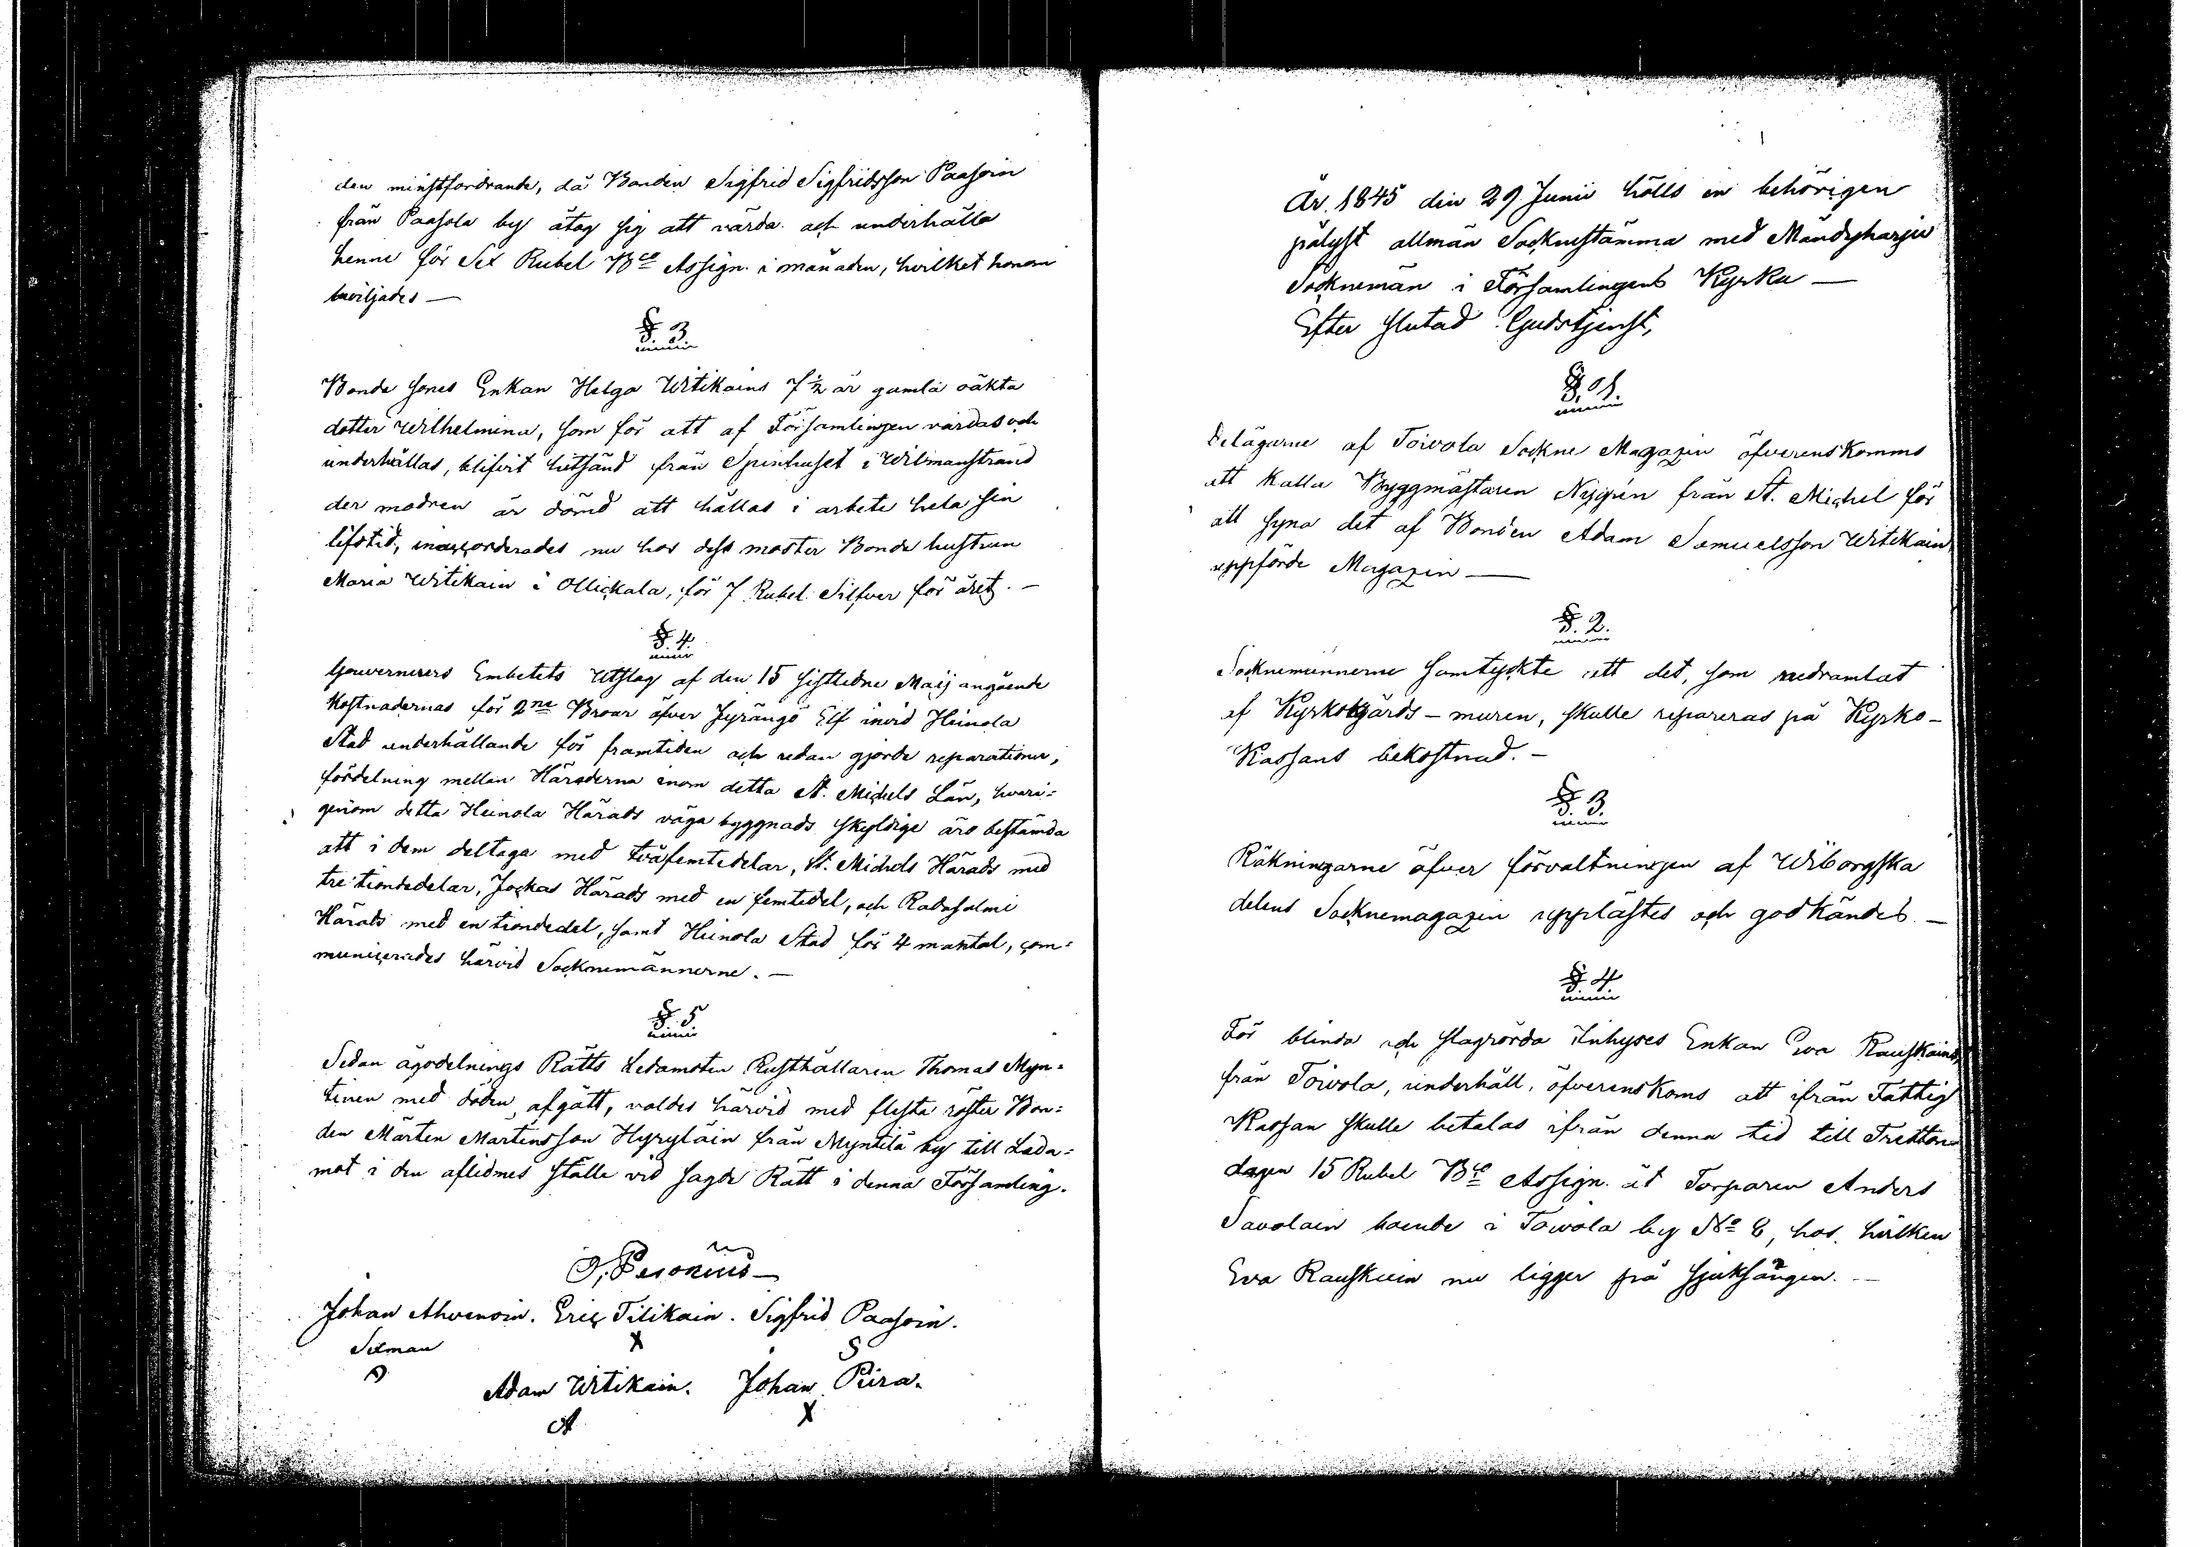 den minstfordrande, då Bonden Sigfrid Sigfridsson Paasoin
från Paasola by åtog sig att vårda och underhålla
henne för Sex Rubel Bco Assign. i månaden, hvilket honom
beviljades —
§ 3.
Bonde sones Enkan Helga Witikains 7½ år gamla oäkta
dotter Wilhelmina, som för att af Församlingen vårdas och
underhållas, blifvit hitsänd från Spinhuset i Wilmanstrand
der modren är dömd att hållas i arbete hela sin
lifstid, inaccorderades nu hos dess moster Bonde hustrun
Maria Witikain i Ollickala, för 7 Rubel Silfver för året. —
§. 4.
Gouverneurs Embetets Utslag af den 15 sistledne Maij angående
Kostnadernas för 2ne Broar öfver Jyrängö Elf invid Heinola
Stad underhållande för framtiden och redan gjorde reparationer,
fördelning mellan Häraderna inom detta St. Michels Län, hvari-
genom detta Heinola Härads väga byggnads skyldige äro bestämda
att i dem deltaga med tvåfemtedelar, St. Michels Härads med
tre tiondedelar, Jockas Härads med en femtedel, och Randasalmi
Härads med en tiondedel, samt Heinola Stad för 4 mantal, com-
municerades härvid Socknemännerne. —
§. 5
Sedan ägodelnings Rätts Ledamoten Rusthållaren Thomas Myn-
tinen med döden afgått, valdes härvid med flesta röster Bon-
den Mårten Mårtensson Hyryläin från Myntilä by till Leda-
mot i den aflidnes ställe vid sagde Rätt i denna Församling.
J. Peronius —
Johan Ahvenoin. Eric Tilikain. Sigfrid Paasoin.
Sexman X S
Adam Witikain. Johan Piira.
A X
År 1845 den 29 Junii hölls en behörigen
pålyst allmän Socknestämma med Mändyharju
Sockneman i Församlingens Kyrka —
Efter slutad Gudstjenst,
§. 1.
Delägarne af Toivola Sockne Magazin öfverenskomms
att kalla Byggmästaren Nygrén från St. Michel för
att syna det af Bonden Adam Samuelsson Witikain
uppförde Magazin —
§. 2.
Socknemännerne samtyckte att det, som nedramlat
af Kyrkogårds-muren, skulle repareras på Kyrko-
Kassans bekostnad. —
§. 3.
Räkningarne öfver förvaltningen af Wiborgska
delens Socknemagazin upplästes och godkändes. —
§ 4.
För blinda och slagrörda Inhyses Enkan Eva Rauskains
från Toivola, underhåll, öfverenskoms att ifrån Fattig
Kassan skulle betalas ifrån denna tid till Tretton
dagen 15 Rubel Bco Assign. åt Torparen Anders
Savolain boende i Toivola by No 8, hos hvilken
Eva Rauskain nu ligger på sjuksängen. —